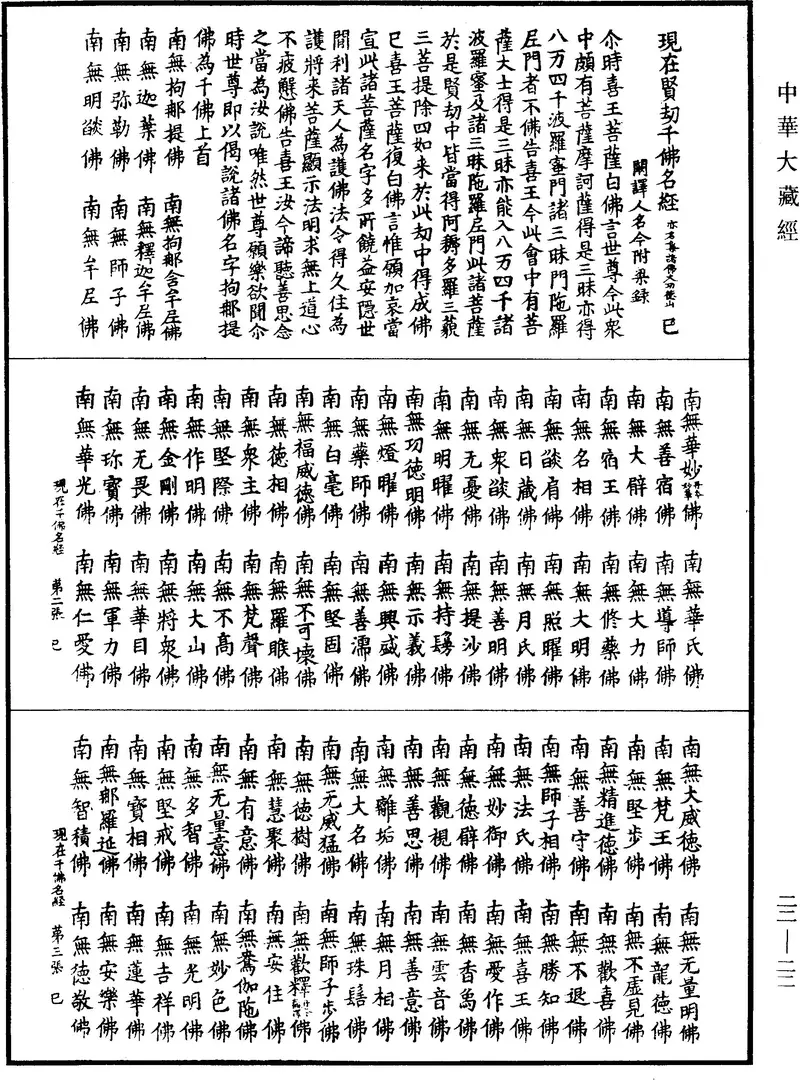 中華大藏經
現在賢劫千佛名經 亦名集諸佛大功德山 巳
闕譯人名今附梁錄
尒時喜王菩薩白佛言世尊今此衆
中頗有菩薩摩訶薩得是三昧亦得
八万四千波羅蜜門諸三昧門陁羅
尼門者不佛告喜王今此會中有菩
薩大士得是三昧亦能入八万四千諸
波羅蜜及諸三昧陁羅尼門此諸菩薩
於是賢劫中皆當得阿耨多羅三藐
三菩提除四如来於此劫中得成佛
巳喜王菩薩復白佛言惟願加哀當
宣此諸菩薩名字多所饒益安隱世
間利諸天人為護佛法令得久住為
護將来菩薩顯示法明求無上道心
不疲懈佛告喜王汝今諦聽善思念
之當為汝說唯然世尊願樂欲聞尒
時世尊即以偈說諸佛名字拘那提
佛為千佛上首
南無拘那提佛 南無拘那含牟尼佛
南無迦葉佛 南無釋迦牟尼佛
南無弥勒佛 南無師子佛
南無明燄佛 南無牟尼佛
南無華妙佛 南無華氏佛
南無善宿佛 南無導師佛
南無大臂佛 南無大力佛
南無宿王佛 南無修藥佛
南無名相佛 南無大明佛
南無燄肩佛 南無照曜佛
南無日藏佛 南無月氏佛
南無衆燄佛 南無善明佛
南無无憂佛 南無提沙佛
南無明曜佛 南無持鬘佛
南無功德明佛 南無示義佛
南無燈曜佛 南無興威佛
南無藥師佛 南無善濡佛
南無白毫佛 南無堅固佛
南無福威德佛 南無不可壞佛
南無德相佛 南無羅睺佛
南無衆主佛 南無梵聲佛
南無堅際佛 南無不高佛
南無作明佛 南無大山佛
南無金剛佛 南無將衆佛
南無无畏佛 南無華目佛
南無珎寶佛 南無軍力佛
南無華光佛 南無仁愛佛
現在千佛名經 第二張 巳
南無大威德佛 南無无量明佛
南無梵王佛 南無龍德佛
南無堅步佛 南無不虛見佛
南無精進德佛 南無歡喜佛
南無善守佛 南無不退佛
南無師子相佛 南無勝知佛
南無法氏佛 南無喜王佛
南無妙御佛 南無愛作佛
南無德臂佛 南無香鳥佛
南無觀視佛 南無雲音佛
南無善思佛 南無善意佛
南無離垢佛 南無月相佛
南無大名佛 南無珠髻佛
南無无威猛佛 南無師子步佛
南無德樹佛 南無歡釋佛
南無慧聚佛 南無安住佛
南無有意佛 南無鴦伽陁佛
南無无量意佛 南無妙色佛
南無多智佛 南無光明佛
南無堅戒佛 南無吉祥佛
南無寶相佛 南無蓮華佛
南無那羅延佛 南無安樂佛
南無智積佛 南無德敬佛
現在千佛名經 第三張 巳
二二—二二